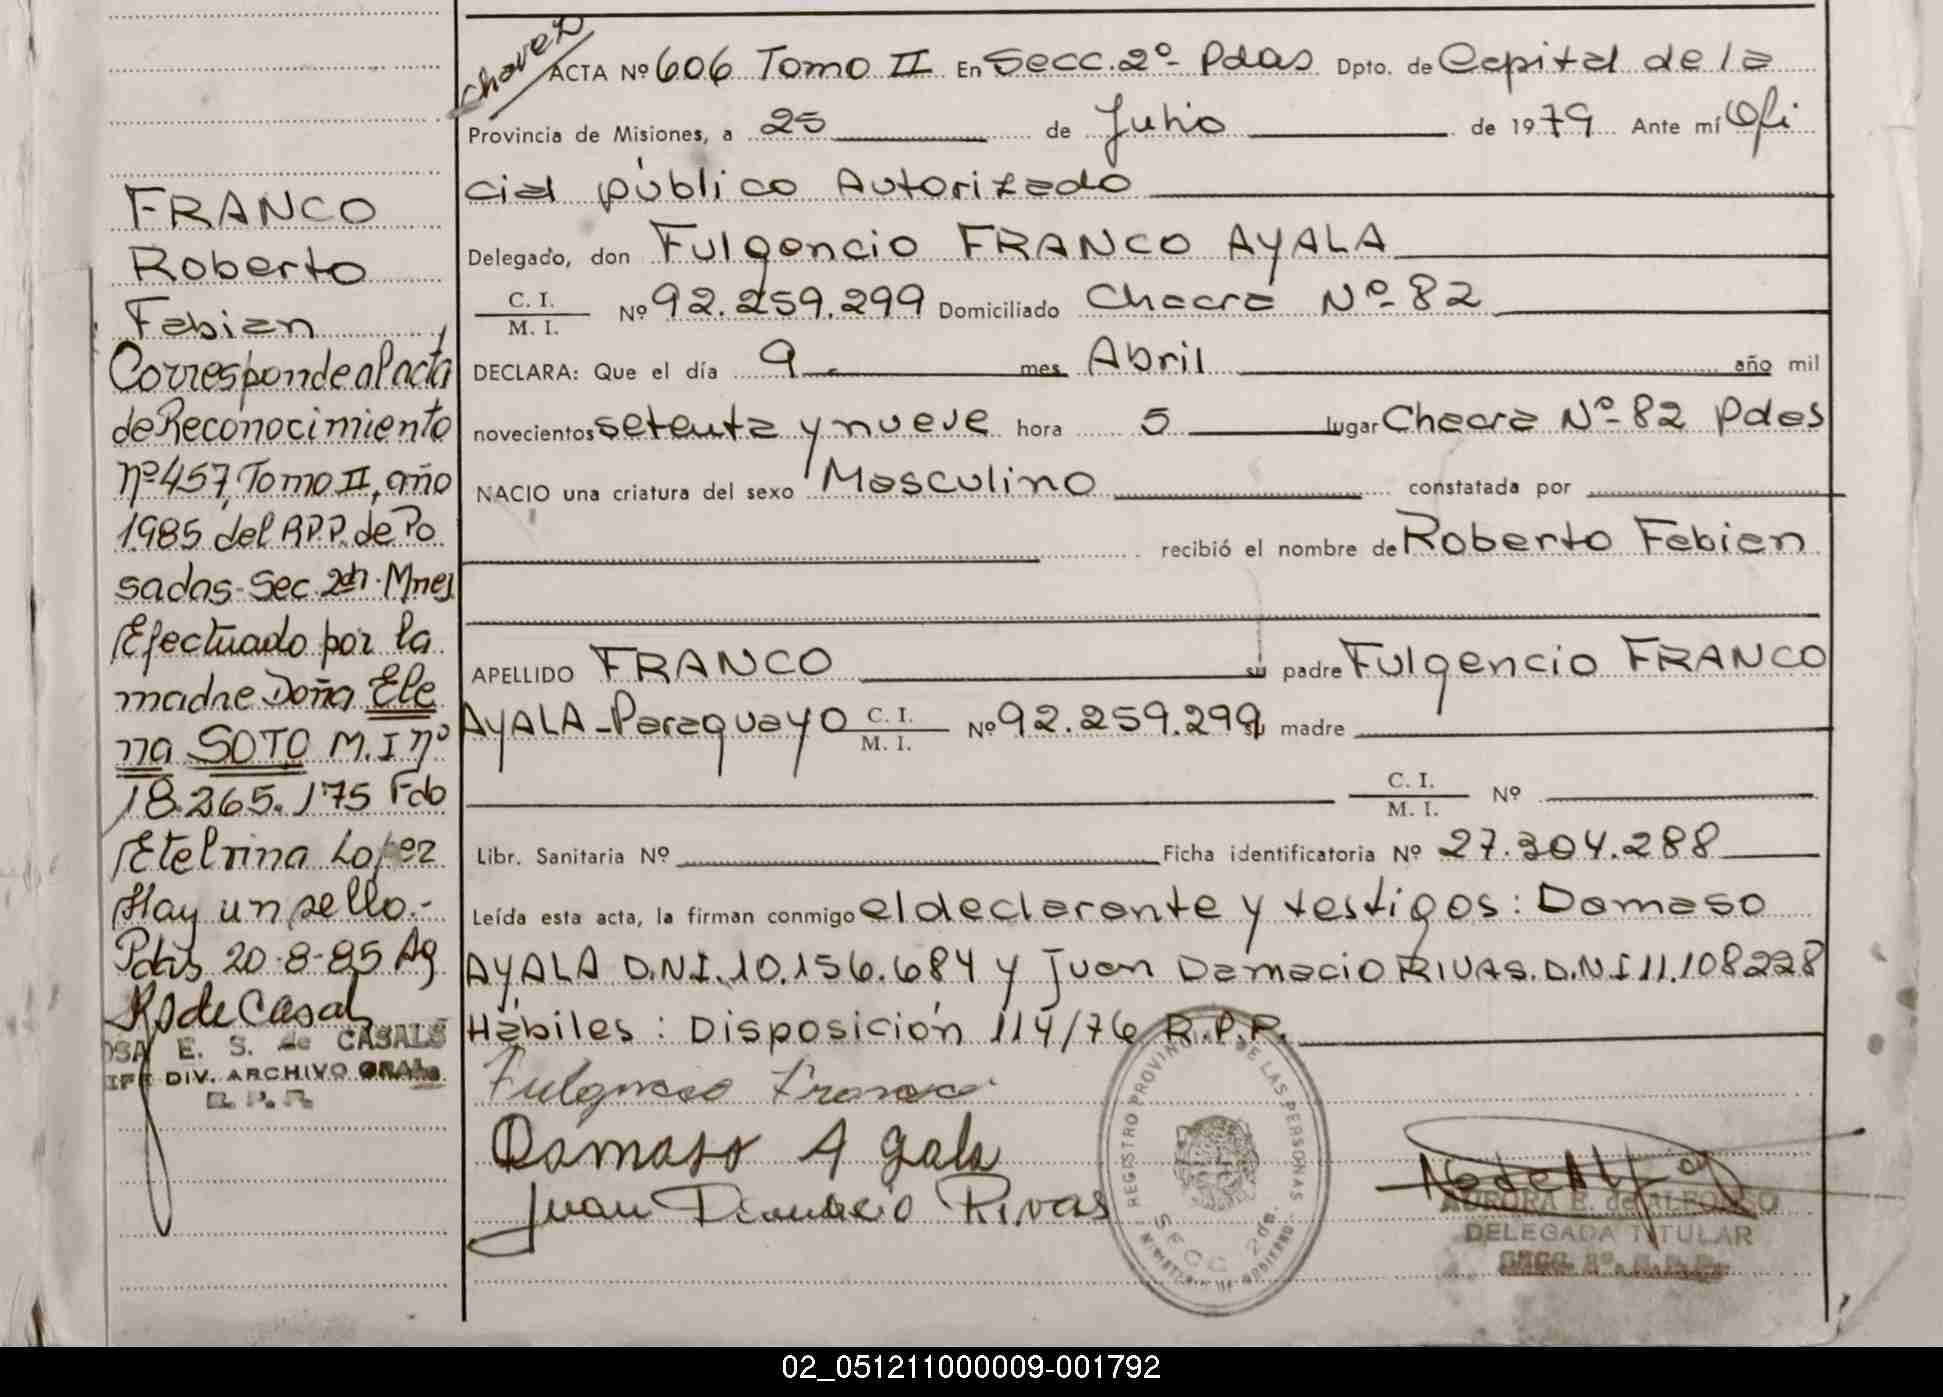 FRANCO
Roberto
Fabian
Corresponde al acta
de Reconocimiento
nº 457, Tomo II, año
1985 del R.P.P. de Po
sadas-Sec. 2da. Mnes
Efectuado por la
madre Doña Ele
na SOTO M.I nº
18.265.175 Fdo
Etelvina Lopez
Hay un sello.-
Pdas 20-8-85 Ag
RS de Casals
OSA E. S. de CASALS
JEFE DIV. ARCHIVO GRAL.
R. P. P.
Chavez
ACTA Nº 606 Tomo II En Secc. 2º- Pdas Dpto. de Capital de la
Provincia de Misiones, a 25 de Julio de 1979 Ante mí Ofi
cial público Autorizado
Delegado, don Fulgencio FRANCO AYALA
C. I.
M. I. Nº 92.259.299 Domiciliado Chacra Nº-82
DECLARA: Que el día 9 mes Abril año mil
novecientos setenta y nueve hora 5 lugar Chacra Nº-82 Pdas
NACIO una criatura del sexo Masculino constatada por
recibió el nombre de Roberto Fabian
APELLIDO FRANCO su padre Fulgencio FRANCO
AYALA-Paraguayo C. I. M. I. Nº 92.259.299 su madre
C. I.
M. I. Nº
Libr. Sanitaria Nº Ficha identificatoria Nº 27.304.288
Leída esta acta, la firman conmigo el declarante y testigos: Damaso
AYALA D.N.I. 10.156.684 y Juan Damacio RIVAS. D.N.I 11.108228
Hábiles: Disposición 114/76 R.P.P.
Fulgencio Franco
Damaso Ayala
Juan Damacio Rivas
REGISTRO PROVINCIAL DE LAS PERSONAS
SECC 2da.
MINISTERIO DE GOBIERNO
AURORA E. de ALFONSO
DELEGADA TITULAR
SECC. 2º. R.P.P.
02_051211000009-001792